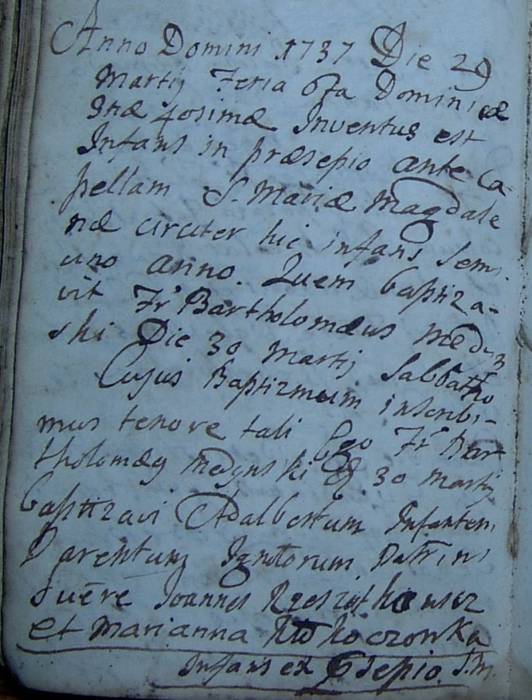 Anno Domini 1737 Die 29
Martij Feria 6ta Dominicæ
4tæ 40simæ Inventus est
Infans in præsepio ante Ca-
pellam S. Mariæ Magdale
næ circiter hic infans Sem.
uno anno. Quem Baptiza-
vit Fr Bartholomæus Medyn
ski Die 30 Martij Sabbatho
Cujus Baptizmum inscribi-
mus tenore tali Ego Fr Bar
tholomæg Medynski D. 30 Martij
Baptizavi Adalbertum Infantem
Parentum Ignotorum Patrini
Fuere Joannes
et Marianna
Infans ex Præsepio. S.M.